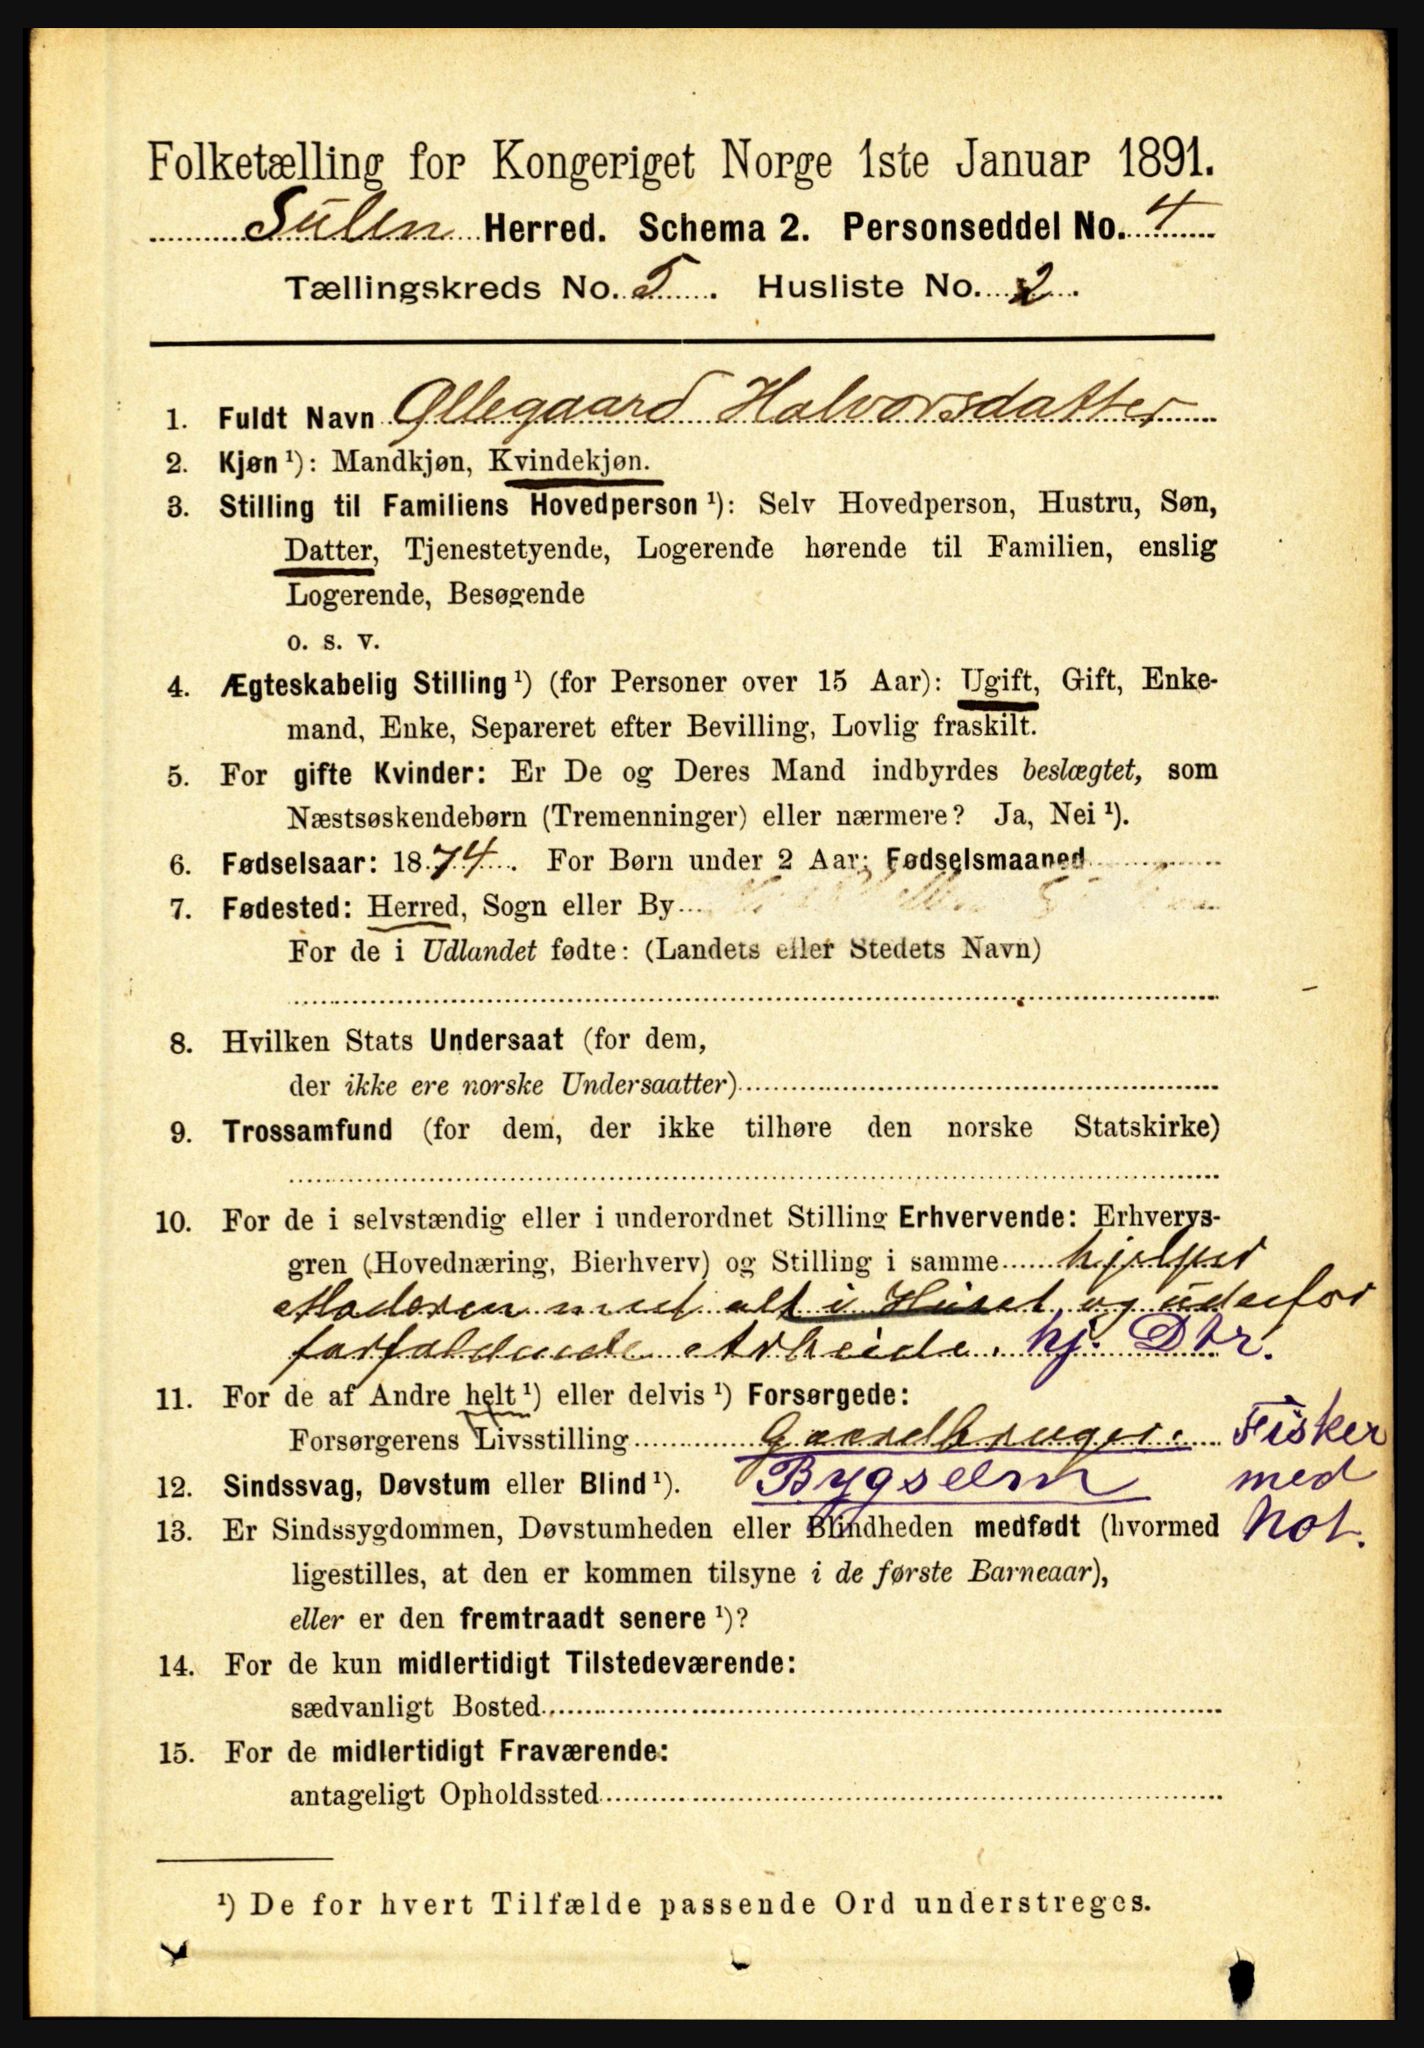 Folketælling for Kongeriget Norge 1ste Januar 1891.
Sulen Herred. Schema 2. Personseddel No. 4
Tællingskreds No. 5. Husliste No. 2.
1. Fuldt Navn Ollegaard Halvorsdatter
2. Kjøn ¹): Mandkjøn, Kvindekjøn.
3. Stilling til Familiens Hovedperson ¹): Selv Hovedperson, Hustru, Søn,
Datter, Tjenestetyende, Logerende hørende til Familien, enslig
Logerende, Besøgende
o. s. v.
4. Ægteskabelig Stilling ¹) (for Personer over 15 Aar): Ugift, Gift, Enke-
mand, Enke, Separeret efter Bevilling, Lovlig fraskilt.
5. For gifte Kvinder: Er De og Deres Mand indbyrdes beslægtet, som
Næstsøskendebørn (Tremenninger) eller nærmere? Ja, Nei ¹).
6. Fødselsaar: 1874. For Børn under 2 Aar: Fødselsmaaned
7. Fødested: Herred, Sogn eller By
For de i Udlandet fødte: (Landets eller Stedets Navn)
8. Hvilken Stats Undersaat (for dem,
der ikke ere norske Undersaatter)
9. Trossamfund (for dem, der ikke tilhøre den norske Statskirke)
10. For de i selvstændig eller i underordnet Stilling Erhvervende: Erhvervs-
gren (Hovednæring, Bierhverv) og Stilling i samme hjelper
Moderen med alt i Huset og udenfor
forfaldende Arbeide. hj. Dtr.
11. For de af Andre helt ¹) eller delvis ¹) Forsørgede:
Forsørgerens Livsstilling Gaardbruger. Fisker
12. Sindssvag, Døvstum eller Blind ¹). Bygselm med
13. Er Sindssygdommen, Døvstumheden eller Blindheden medfødt (hvormed Not.
ligestilles, at den er kommen tilsyne i de første Barneaar),
eller er den fremtraadt senere ¹)?
14. For de kun midlertidigt Tilstedeværende:
sædvanligt Bosted
15. For de midlertidigt Fraværende:
antageligt Opholdssted
¹) De for hvert Tilfælde passende Ord understreges.